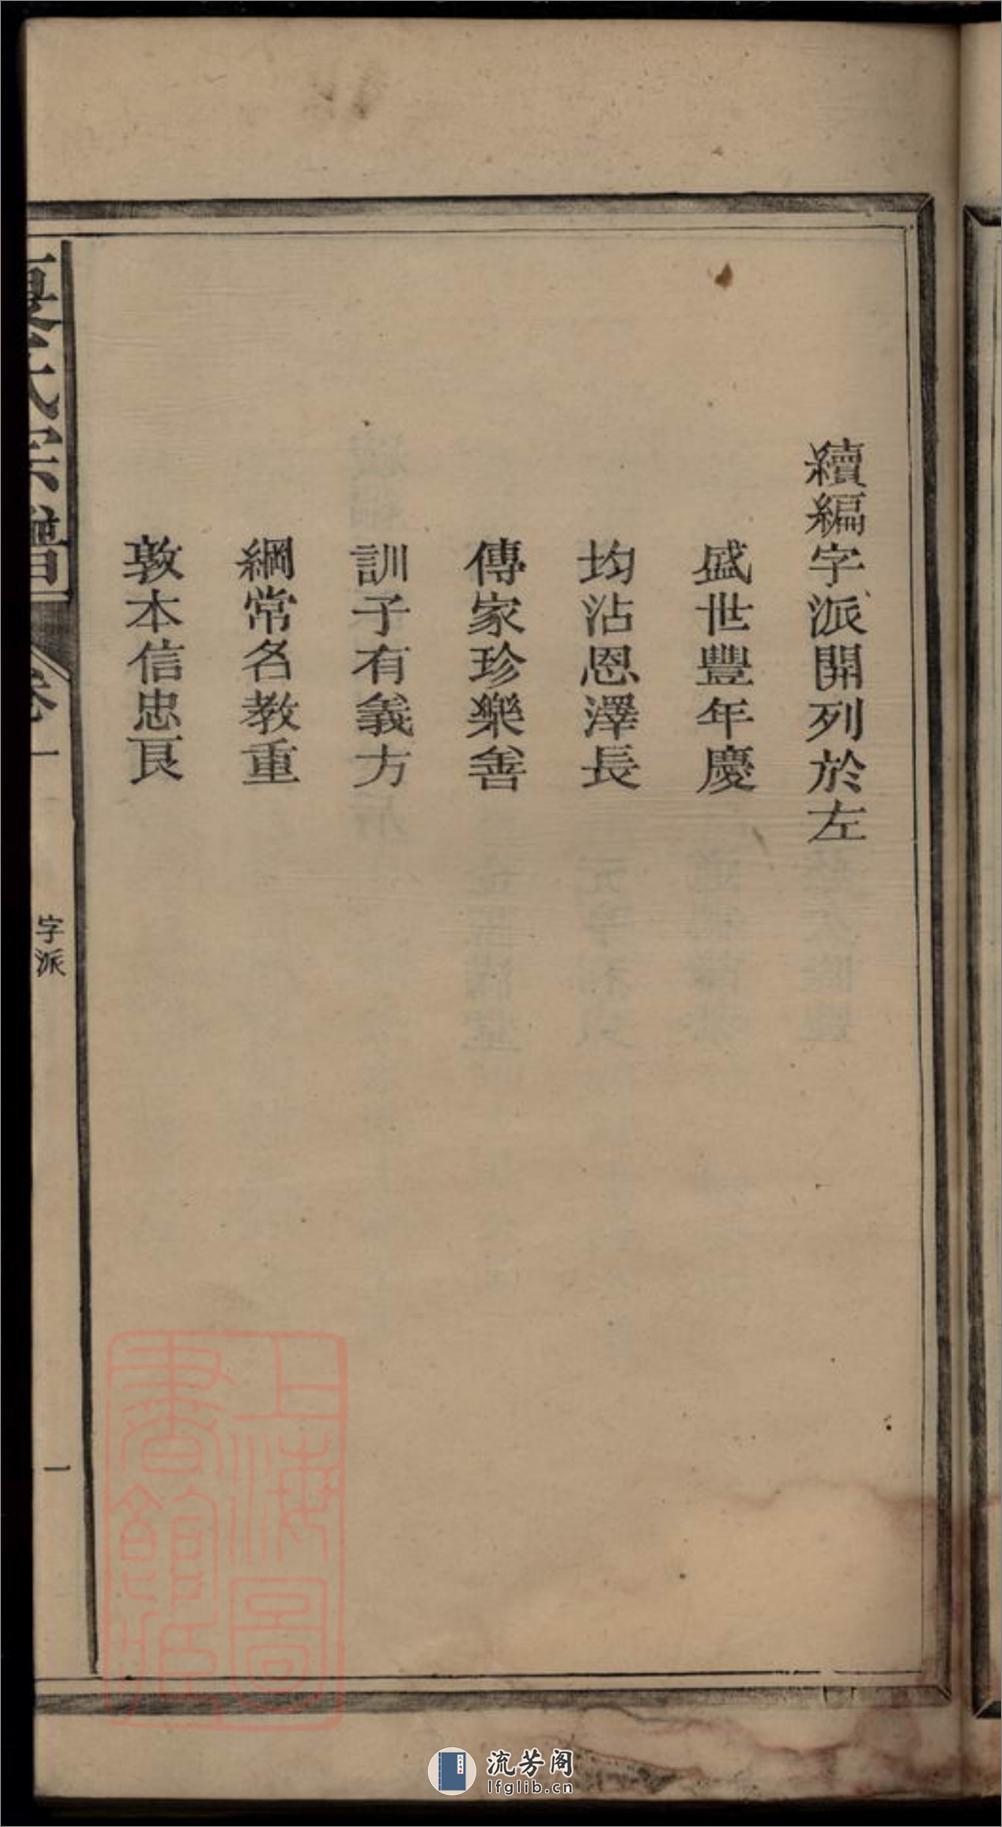 續編字派開列於左
盛世豐年慶
均沾恩澤長
傳家珍樂善
訓子有義方
綱常名教重
敦本信忠良
氏宗譜
卷一
字派
一
上海圖
書館藏
流芳阁
lfglib.cn